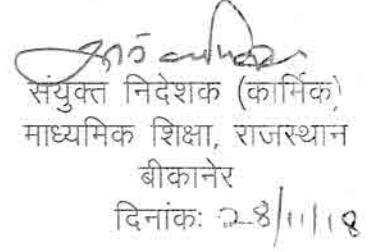 संयुक्त निदेशक (कार्मिक)
माध्यमिक शिक्षा, राजस्थान
बीकानेर
दिनांकः 28/11/18